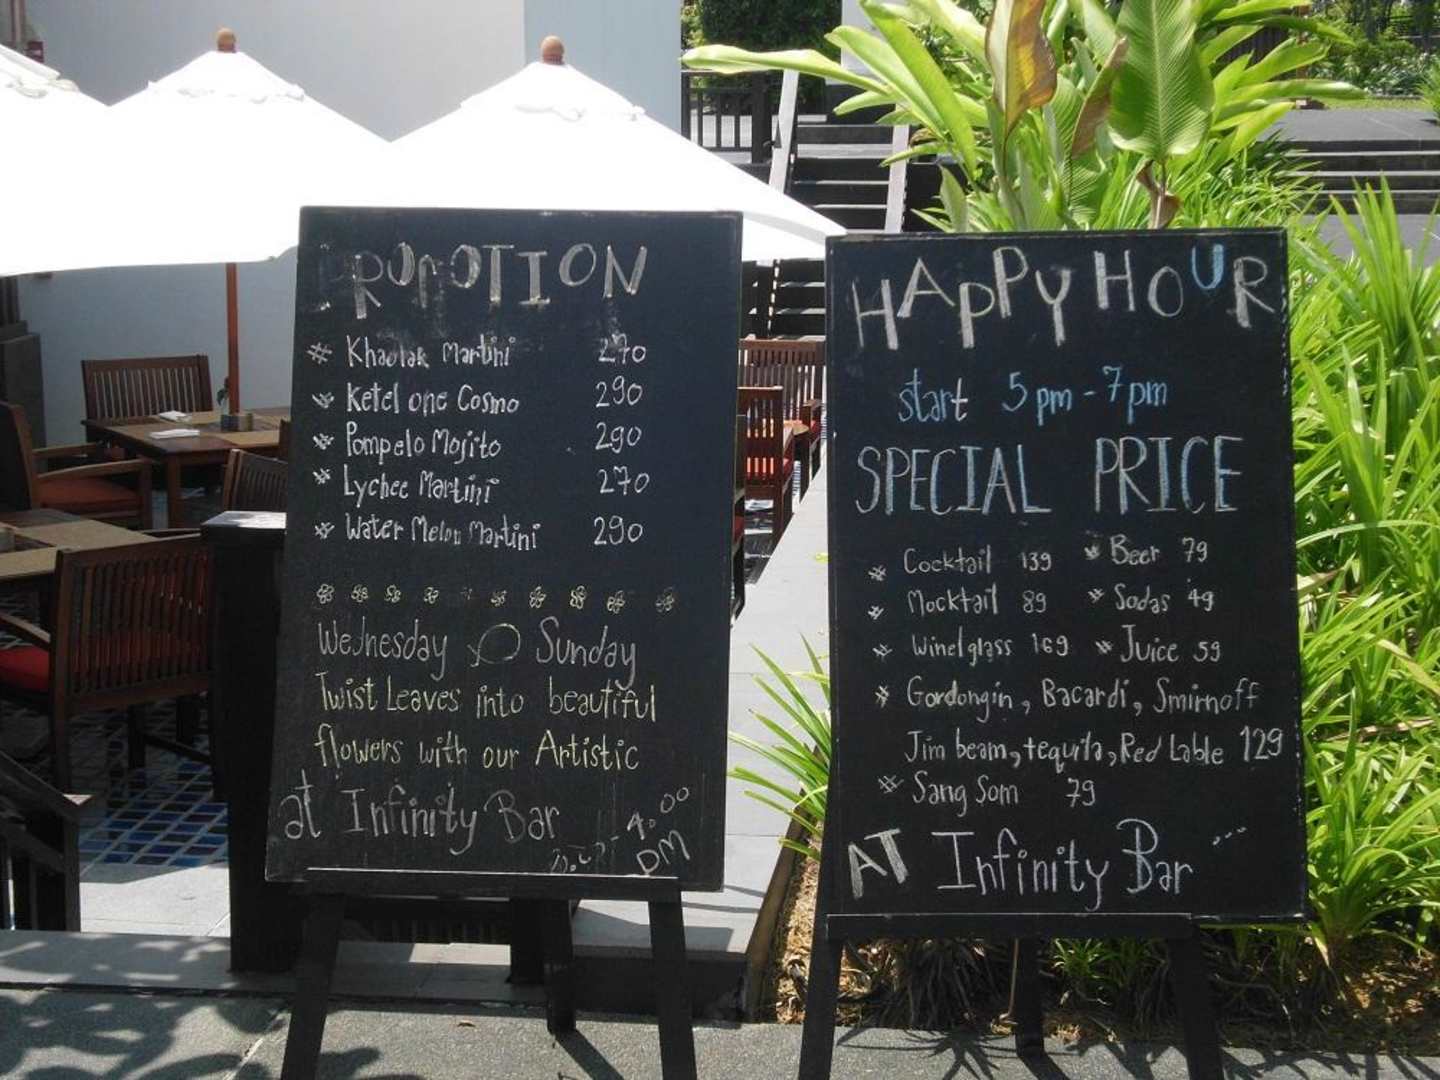 PROMOTION
Khaolak Martini 270
Ketel one Cosmo 290
Pompelo Mojito 290
Lychee Martini 270
Water Melon Martini 290
Wednesday Sunday
Twist Leaves into beautiful
flowers with our Artistic
at Infinity Bar
4.00 PM
HAPPY HOUR
start 5 pm - 7 pm
SPECIAL PRICE
Cocktail 139 Beer 79
Mocktail 89 Sodas 49
Wine/glass 169 Juice 59
Gordongin, Bacardi, Smirnoff
Jim beam, tequila, Red Lable 129
Sang Som 79
AT Infinity Bar ...